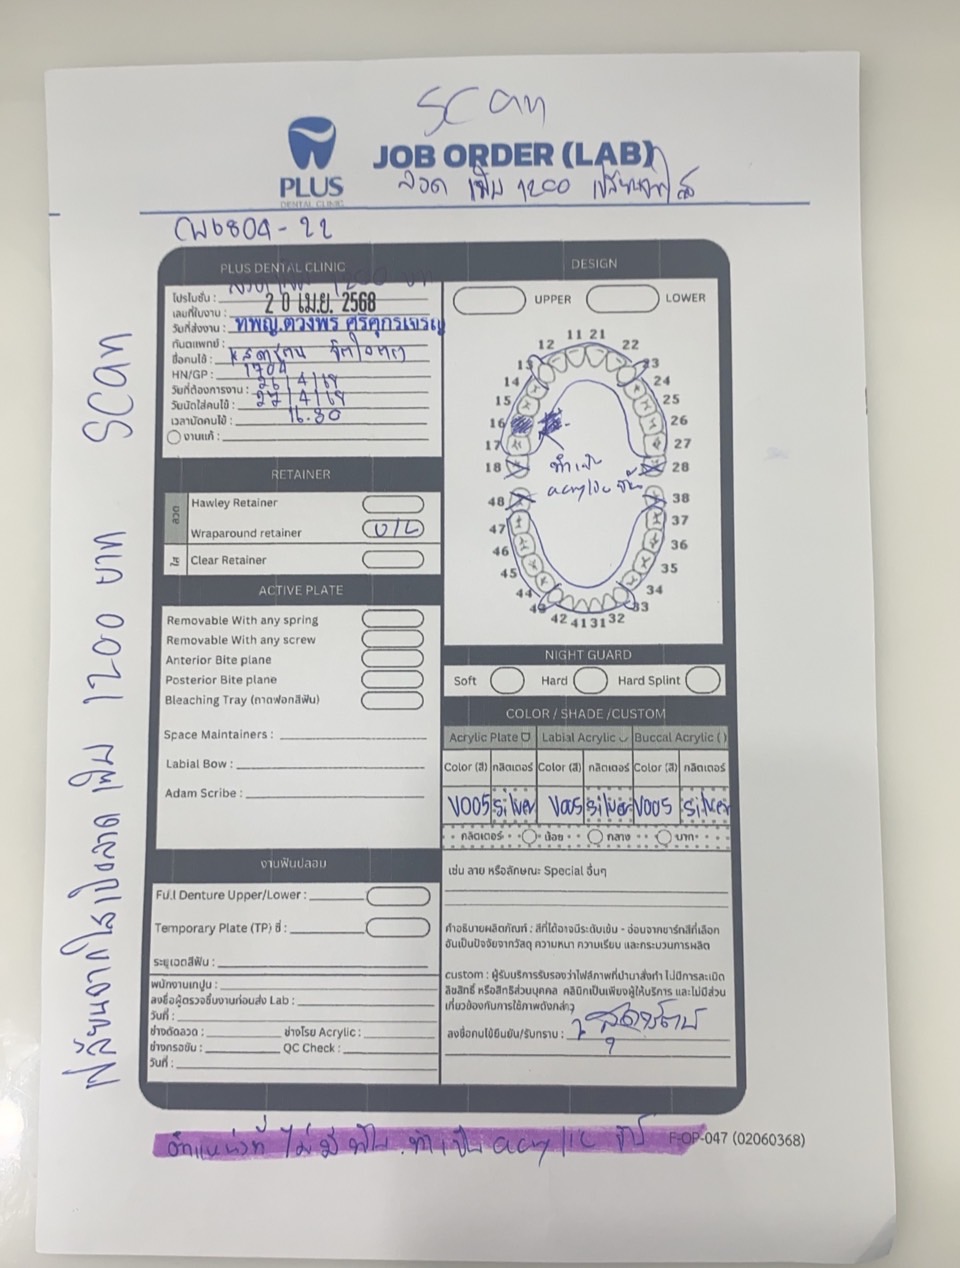 scan
PLUS
DENTAL CLINIC
JOB ORDER (LAB)
ลวด เพิ่ม 1200 เปลี่ยนจากใส
CW6804-22
PLUS DENTAL CLINIC
โปรโมชั่น : 1200
เลขที่ใบงาน : 2 0 เม.ย. 2568
วันที่ส่งงาน : ทพญ.ดวงพร ศรีศุภรเจริญ
ทันตแพทย์ :
ชื่อคนไข้ :
HN/GP : 1704
วันที่ต้องการงาน : 26/4/68
วันนัดใส่คนไข้ : 27/4/68
เวลานัดคนไข้ : 16.30
งานแก้ :
RETAINER
ลวด
Hawley Retainer
Wraparound retainer U/L
ใส
Clear Retainer
ACTIVE PLATE
Removable With any spring
Removable With any screw
Anterior Bite plane
Posterior Bite plane
Bleaching Tray (ถาดฟอกสีฟัน)
Space Maintainers :
Labial Bow :
Adam Scribe :
งานฟันปลอม
Full Denture Upper/Lower :
Temporary Plate (TP) ซี่ :
ระบุเฉดสีฟัน :
พนักงานเทปูน :
ลงชื่อผู้ตรวจชิ้นงานก่อนส่ง Lab :
วันที่ :
ช่างดัดลวด : ช่างโรย Acrylic :
ช่างกรอขัด : QC Check :
วันที่ :
DESIGN
UPPER LOWER
11 21
12 22
13 23
14 24
15 25
16 26
17 27
18 28
ทำเป็น
acrylic ชิ้น
48 38
47 37
46 36
45 35
44 34
43 33
42 41 31 32
NIGHT GUARD
Soft Hard Hard Splint
COLOR / SHADE /CUSTOM
Acrylic Plate Labial Acrylic Buccal Acrylic ( )
Color (สี) กลิตเตอร์ Color (สี) กลิตเตอร์ Color (สี) กลิตเตอร์
V005 silver V005 silver V005 silver
กลิตเตอร์ น้อย กลาง มาก
เช่น ลาย หรือลักษณะ Special อื่นๆ
คำอธิบายผลิตภัณฑ์ : สีที่ได้อาจมีระดับเข้ม - อ่อนจากชาร์ทสีที่เลือก
อันเป็นปัจจัยจากวัสดุ ความหนา ความเรียบ และกระบวนการผลิต
custom : ผู้รับบริการรับรองว่าไฟล์ภาพที่นำมาสั่งทำ ไม่มีการละเมิด
ลิขสิทธิ์ หรือสิทธิส่วนบุคคล คลินิกเป็นเพียงผู้ให้บริการ และไม่มีส่วน
เกี่ยวข้องกับการใช้ภาพดังกล่าว
ลงชื่อคนไข้ยืนยัน/รับทราบ :
ตำแหน่งที่ ไม่มี ฟัน ทำเป็น acrylic
F-OP-047 (02060368)
เปลี่ยนจากใสเป็นลวด เพิ่ม 1200 บาท scan